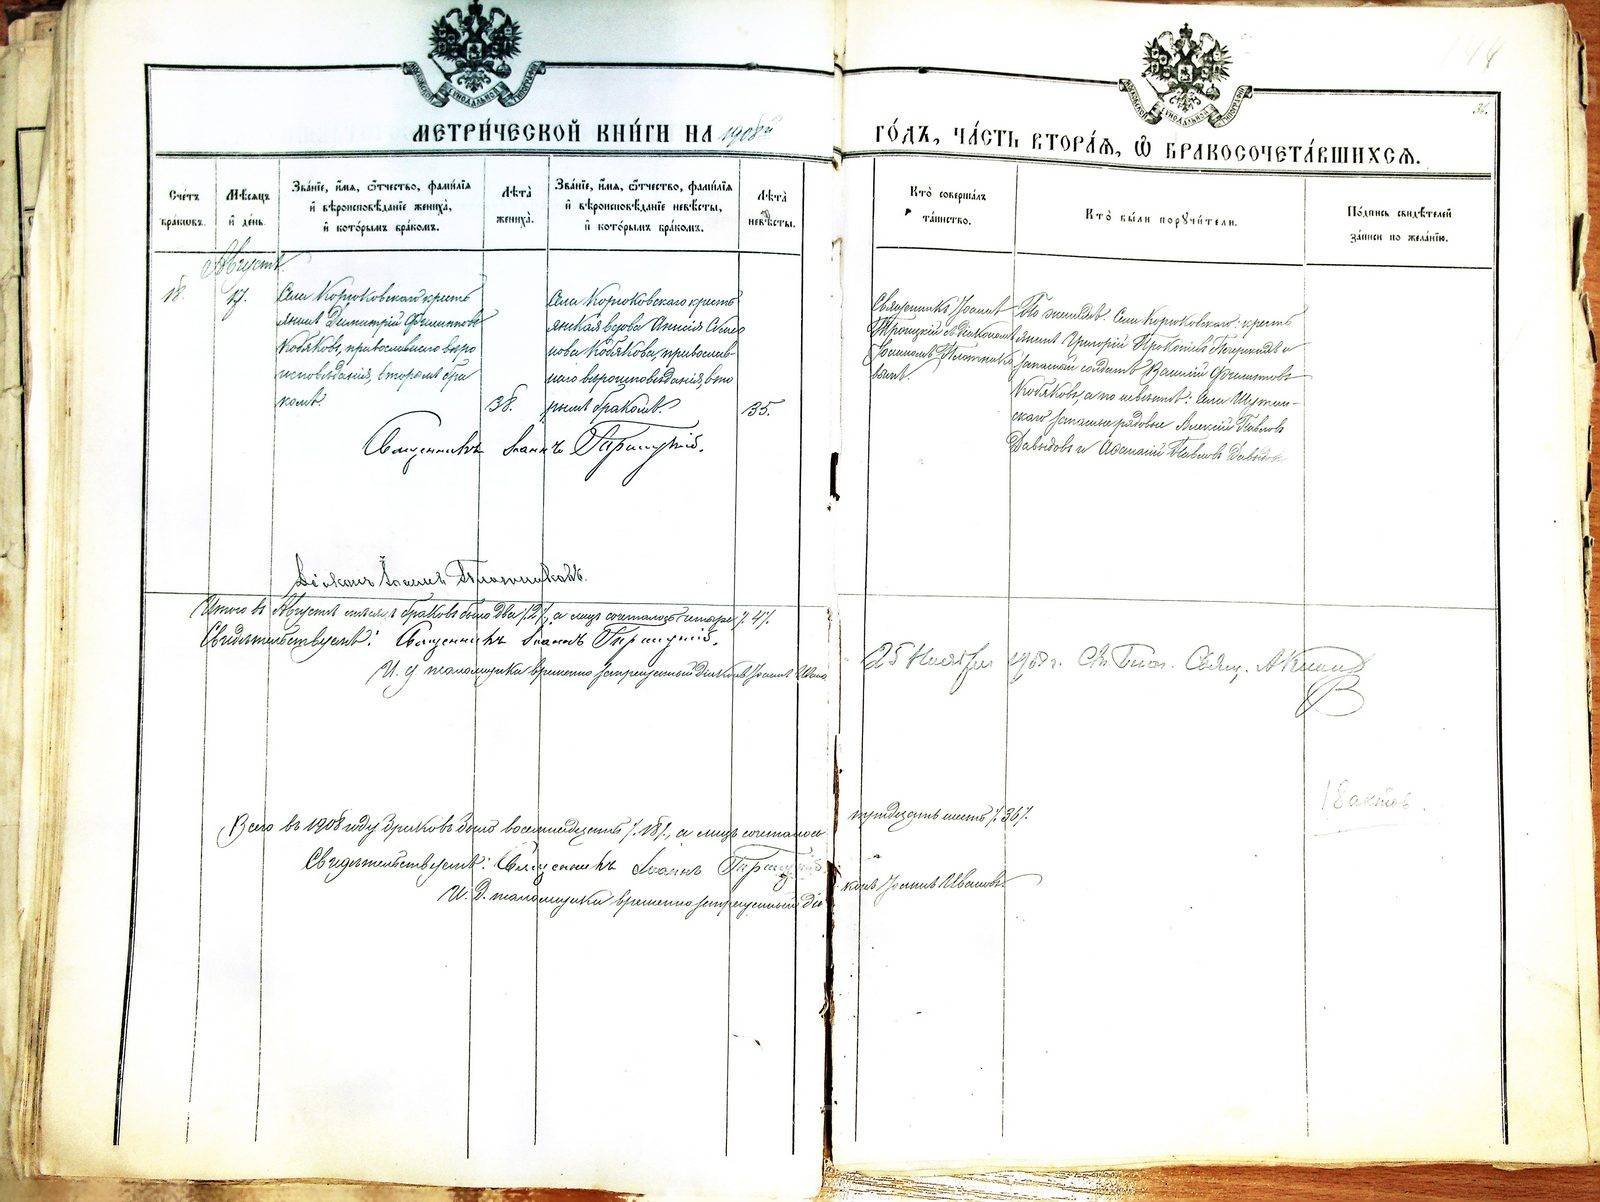 МОСКОВСКОЙ СѴНОДАЛЬНОЙ ТИПОГРАФІИ
МОСКОВСКОЙ СѴНОДАЛЬНОЙ ТИПОГРАФІИ
36.
МЕТРИ́ЧЕСКОЙ КНИ́ГИ НА 1908й ГО́ДЪ, ЧА́СТЬ ВТОРА́Я, Ѽ БРАКОСОЧЕТА́ВШИХСЯ.
Сче́тъ бра́ковъ.
Мѣ́сяцъ и҆ де́нь.
Зва́нїе, и҆́мя, ѻ҆́тчество, фами́лїя и҆ вѣроисповѣ́данїе жениха̀, и҆ кото́рымъ бра́комъ.
Лѣ́та жениха̀.
Зва́нїе, и҆́мя, ѻ҆́тчество, фами́лїя и҆ вѣроисповѣ́данїе невѣ́сты, и҆ кото́рымъ бра́комъ.
Лѣ́та невѣ́сты.
Кто̀ соверша́лъ та́инство.
Кто̀ бы́ли порꙋчи́тели.
По́дпись свидѣ́телей за́писи по жела́нїю.
Августъ
18.
17.
Села Корюковскаго кресть
янинъ Димитрій Филипповъ
Кобяковъ, православнаго вѣро
исповѣданія, вторымъ бра
комъ.
38.
Села Корюковскаго кресть
янская вдова Анна
нова Кобякова, православ-
наго вѣроисповѣданія, вто
рымъ бракомъ.
35.
Священникъ Іоаннъ
Троицкій съ діакономъ
Іоанномъ Плотнико
вымъ.
По женихѣ: Села Корюковскаго: кресть
янинъ Григорій Прокопіевъ и
запасный солдатъ Василій Филипповъ
Кобяковъ, а по невѣстѣ: села
скаго запасные рядовые Алексій Павловъ
Давыдовъ и Аѳанасій Павловъ Давыдовъ
Священникъ Іоаннъ Троицкій.
Діаконъ Іоаннъ Плотниковъ.
Итого въ Августѣ мѣсяцѣ браковъ было два /.2/., а лицъ сочеталось четыре /.4/.
Свидѣтельствуемъ: Священникъ Іоаннъ Троицкій.
И. д. псаломщика временно запрещенный Діаконъ Іоаннъ Ивано
25 Ноября 1908 г. Свящ.
18 актовъ.
Всего въ 1908 году браковъ было восемнадцать /.18/., а лицъ сочеталось тридцать шесть /.36/.
Свидѣтельствуемъ: Священникъ Іоаннъ Троицкій.
И. Д. псаломщика временно запрещенный діаконъ Іоаннъ Ивановъ.